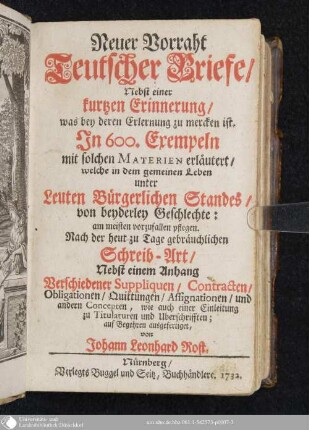 Neuer Vorraht
Teutscher Briefe/
Nebst einer
kurtzen Erinnerung/
was bey deren Erlernung zu mercken ist.
In 600. Exempeln
mit solchen MATERIEN erläutert/
welche in dem gemeinen Leben
unter
Leuten Bürgerlichen Standes/
von beyderley Geschlechte:
am meisten vorzufallen pflegen.
Nach der heut zu Tage gebräuchlichen
Schreib-Art/
Nebst einem Anhang
Verschiedener Suppliquen/ Contracten/
Obligationen/ Quittungen/ Assignationen/ und
andern Concepten, wie auch einer Einleitung
zu Titulaturen und Uberschrifften;
auf Begehren ausgefertiget,
von
Johann Leonhard Rost.
Nürnberg/
Verlegts Buggel und Seitz, Buchhändlere. 1732.
Universitäts- und
Landesbibliothek Düsseldorf